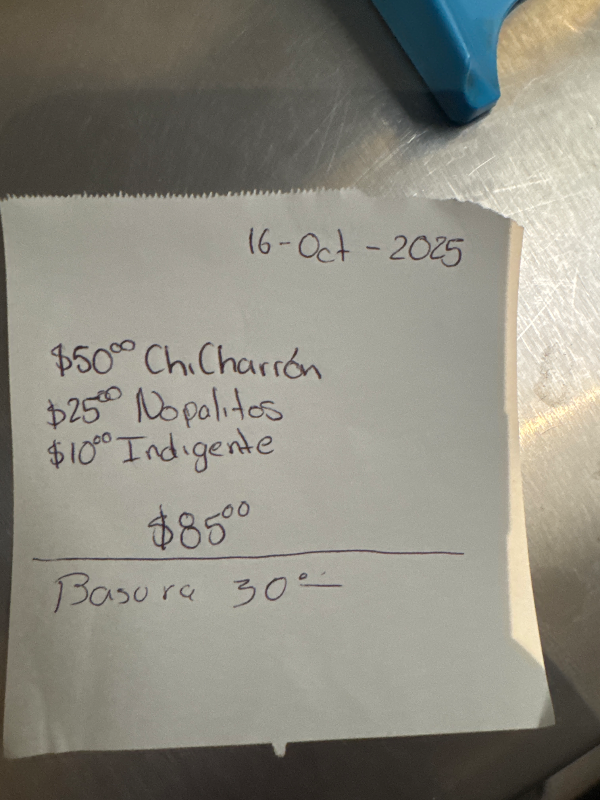 16-Oct-2025
$50⁰⁰ Chicharrón
$25⁰⁰ Nopalitos
$10⁰⁰ Indigente
$85⁰⁰
Basura 30⁰⁰